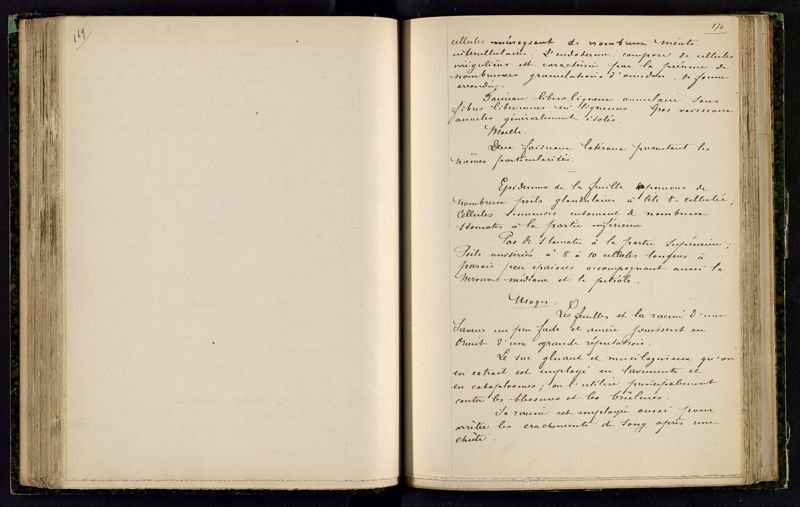 169
170
cellules ménageant de nombreux méats
intercellulaires. L'endoderme composé de cellules
irrégulières est caractérisé par la présence de
nombreuses granulations d'amidon, de forme
arrondie.
Faisceau libero ligneux annulaire sans
fibres libériennes ni ligneuses. Gros vaisseaux
annelés généralement isolés.
Moelle.
Deux faisceaux latéraux présentant les
mêmes particularités.
Epiderme de la feuille pourvu de
nombreux poils glandulaires à tête 8-cellulée,
Cellules sinueuses entourant de nombreux
stomates à la partie inférieure
Pas de stomates à la partie supérieure;
Poils unisériés à 8 à 10 cellules longues à
parois peu épaisses accompagnant aussi la
nervure médiane et le pétiole.
Usages.
Les feuilles et la racine d'une
saveur un peu fade et amère jouissent en
d'une grande réputation.
Le suc gluant et mucilagineux qu'on
en extrait est employé en lavements et
en cataplasmes; on l'utilise principalement
contre les blessures et les brûlures.
Sa racine est employée aussi pour
arrêter les crachements de sang après une
chute.